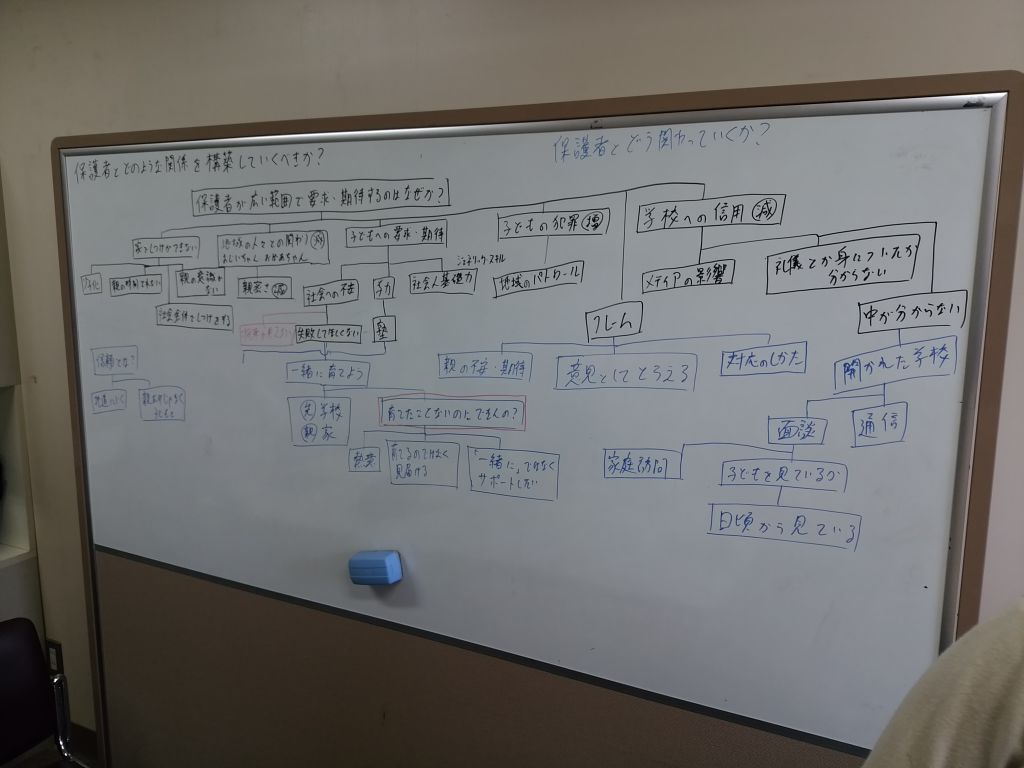 保護者とどのような関係を構築していくべきか?
保護者とどう関わっていくか?
保護者が広い範囲で要求・期待するのはなぜか?
家でしつけができない
地域の人々との関わり 減
おじいちゃん おばあちゃん
子どもへの要求・期待
子どもの犯罪 増
学校への信用 減
親の時間できない
親の意識がない
親密さ 減
社会への不安
学力
社会人基礎力
ジェネリックスキル
地域のパトロール
メディアの影響
礼儀とか身についたか
分からない
社会全体でしつけをする
失敗して欲しくない
塾
クレーム
中が分からない
信頼とは?
一緒に育てよう
親の不安・期待
意見としてとらえる
対応のしかた
開かれた学校
学校
親 家
育てたことないのにできんの?
面談
通信
熱意
育てるのではなく
見届ける
「一緒に」ではなく
サポートしたい
家庭訪問
子どもを見ているか
日頃から見ている